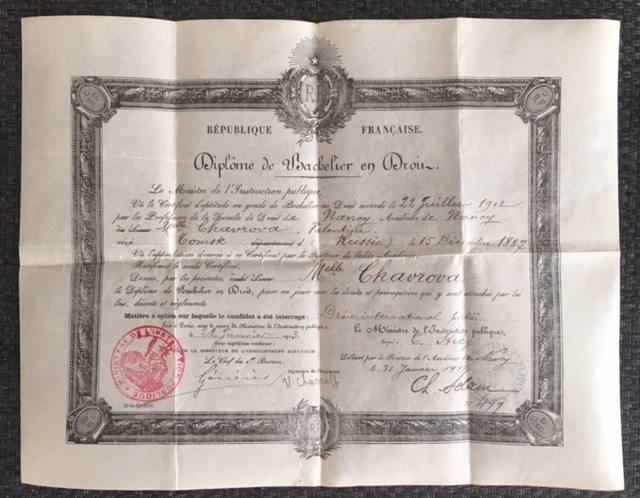 RF
RÉPUBLIQUE FRANÇAISE.
Diplôme de Bachelier en Droit.
Le Ministre de l'Instruction publique,
Vu le Certificat d'aptitude au grade de Bachelier en Droit accordé le 22 Juillet 1912
par les Professeurs de la Faculté de Droit de Nancy Académie de Nancy
au Sieur Melle Chavrova, Valentine
né à Tomsk département d (Russie) le 15 Décembre 1887
Vu l'approbation donnée à ce Certificat par le Recteur de ladite Académie,
Ratifiant le susdit Certificat,
Donne, par les présentes, audit Sieur Melle Chavrova
le Diplôme de Bachelier en Droit, pour en jouir avec les droits et prérogatives qui y sont attachés par les
lois, décrets et règlements.
Matière à option sur laquelle le candidat a été interrogé: Droit international public
Fait à Paris, sous le sceau du Ministère de l'Instruction publique,
le janvier 1913
Pour expédition conforme:
Le Ministre de l'Instruction publique,
Signé:
LE DIRECTEUR DE L'ENSEIGNEMENT SUPÉRIEUR
Le Chef du Bureau,
Délivré par le Recteur de l'Académie de Nancy
le 31 Janvier
Signature de l'impétrant
Ch. Adam
MINISTÈRE DE L'INSTRUCTION PUBLIQUE